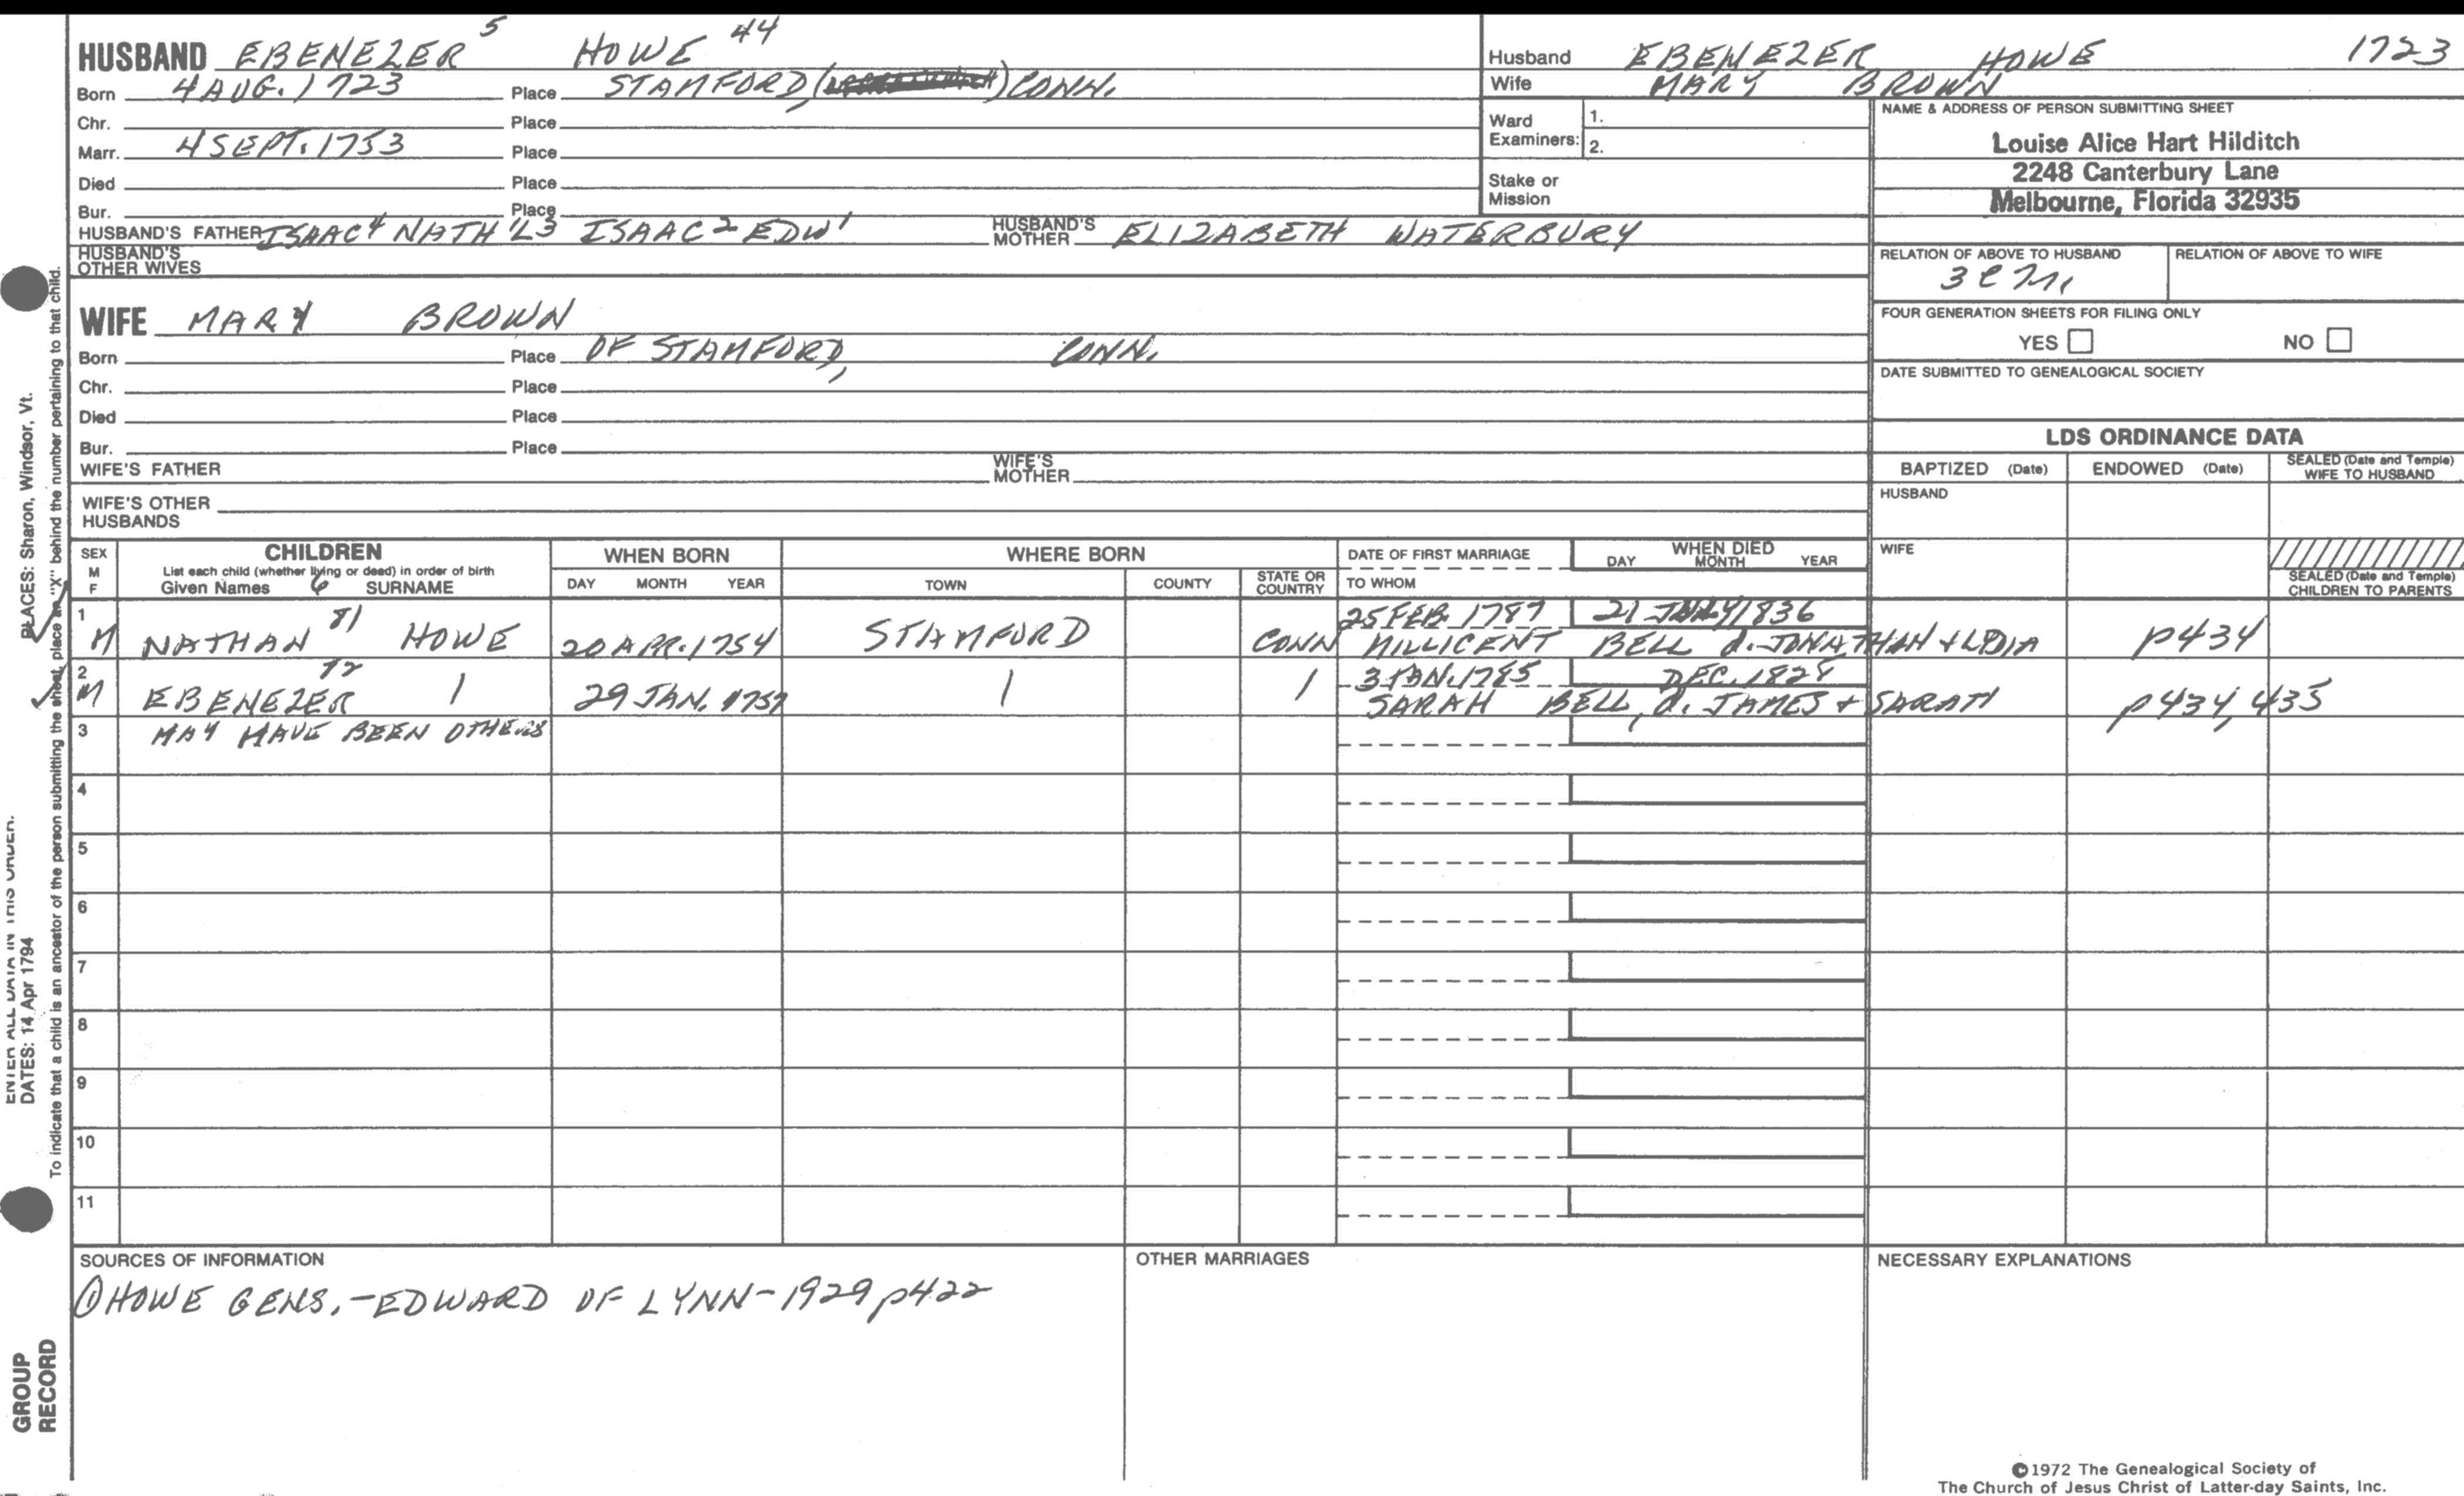 HUSBAND EBENEZER 5 HOWE 44
Born 4 AUG. 1723 Place STAMFORD, ( ) CONN.
Chr. Place
Marr. 4 SEPT. 1753 Place
Died Place
Bur. Place
HUSBAND'S FATHER ISAAC 4 NATH'L 3 ISAAC 2 EDW 1 HUSBAND'S MOTHER ELIZABETH WATERBURY
HUSBAND'S OTHER WIVES
WIFE MARY BROWN
Born Place OF STAMFORD, CONN.
Chr. Place
Died Place
Bur. Place
WIFE'S FATHER WIFE'S MOTHER
WIFE'S OTHER HUSBANDS
Husband EBENEZER HOWE 1723
Wife MARY BROWN
Ward Examiners: 1.
2.
Stake or Mission
NAME & ADDRESS OF PERSON SUBMITTING SHEET
Louise Alice Hart Hilditch
2248 Canterbury Lane
Melbourne, Florida 32935
RELATION OF ABOVE TO HUSBAND RELATION OF ABOVE TO WIFE
FOUR GENERATION SHEETS FOR FILING ONLY
YES NO
DATE SUBMITTED TO GENEALOGICAL SOCIETY
LDS ORDINANCE DATA
BAPTIZED (Date) ENDOWED (Date) SEALED (Date and Temple) WIFE TO HUSBAND
HUSBAND
WIFE
SEALED (Date and Temple) CHILDREN TO PARENTS
SEX M F
CHILDREN
List each child (whether living or dead) in order of birth
Given Names 6 SURNAME
WHEN BORN
DAY MONTH YEAR
WHERE BORN
TOWN COUNTY STATE OR COUNTRY
DATE OF FIRST MARRIAGE
TO WHOM
WHEN DIED
DAY MONTH YEAR
1 25 FEB. 1787 21 1836
M NATHAN 81 HOWE 20 APR. 1754 STAMFORD CONN MILLICENT BELL d. JONATHAN + LYDIA p434
2 3 JAN. 1785 DEC. 1828
M EBENEZER 29 JAN. 1757 SARAH BELL, d. JAMES + SARAH p434, 435
3 MAY HAVE BEEN OTHERS
4
5
6
7
8
9
10
11
SOURCES OF INFORMATION
① HOWE GENS. - EDWARD OF LYNN - 1929 p422
OTHER MARRIAGES
NECESSARY EXPLANATIONS
©1972 The Genealogical Society of
The Church of Jesus Christ of Latter-day Saints, Inc.
ENTER ALL DATA IN THIS ORDER.
DATES: 14 Apr 1794
PLACES: Sharon, Windsor, Vt.
To indicate that a child is an ancestor of the person submitting the sheet, place an "X" behind the number pertaining to that child.
GROUP
RECORD